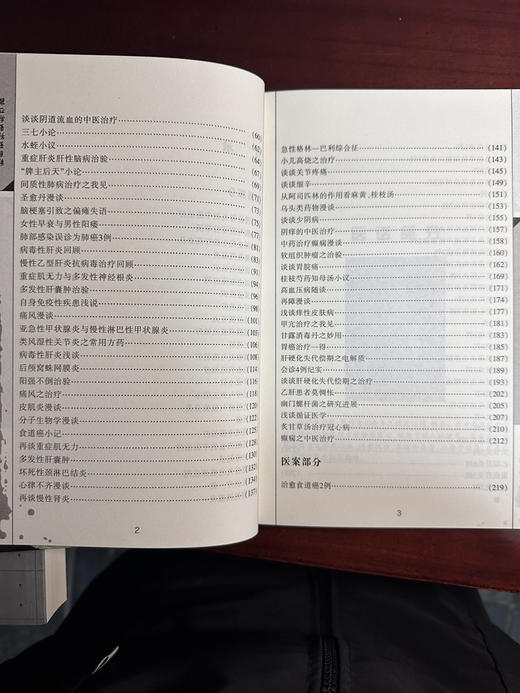 谈谈阴道流血的中医治疗……(60)
三七小论……(62)
水蛭小议……(62)
重症肝炎肝性脑病治验……(64)
“脾主后天”小论……(67)
间质性肺病治疗之我见……(69)
圣愈丹漫谈……(71)
脑梗塞引致之偏瘫失语……(73)
女性早衰与男性阳痿……(75)
肺部感染误诊为肺癌3例……(77)
病毒性肝炎回顾……(81)
慢性乙型肝炎抗病毒治疗回顾……(83)
重症肌无力与多发性神经根炎……(88)
多发性肝囊肿治验……(91)
自身免疫性疾患浅说……(94)
痛风漫谈……(98)
亚急性甲状腺炎与慢性淋巴性甲状腺炎……(101)
类风湿性关节炎之常用方药……(103)
病毒性肝炎浅谈……(106)
后颅窝蛛网膜炎……(109)
阳强不倒治验……(110)
痛风之治疗……(112)
皮肌炎漫谈……(114)
分子生物学漫谈……(115)
食道癌小记……(120)
再谈重症肌无力……(122)
多发性肝囊肿……(125)
坏死性颈淋巴结炎……(132)
心律不齐漫谈……(134)
再谈慢性肾炎……(137)
2
急性格林—巴利综合征……(141)
小儿高烧之治疗……(143)
谈谈关节疼痛……(145)
谈谈细辛……(149)
从阿司匹林的作用看麻黄、桂枝汤……(151)
乌头类药物漫谈……(153)
谈谈少阴病……(155)
阴痒的中医治疗……(157)
中药治疗癫痫漫谈……(158)
软组织肿瘤之治验……(160)
谈谈胃脘痛……(162)
桂枝芍药知母汤小议……(169)
高血压病随谈……(171)
再障漫谈……(174)
浅谈痒性皮肤病……(177)
甲亢治疗之我见……(179)
甘露消毒丹之妙用……(181)
胃癌治疗一得……(185)
肝硬化失代偿期之电解质……(187)
会诊4例纪实……(191)
谈谈肝硬化失代偿期之治疗……(193)
乙肝患者莫惆怅……(202)
幽门螺杆菌之研究进展……(205)
浅谈循证医学……(207)
炙甘草汤治疗冠心病……(210)
癫痫之中医治疗……(212)
医案部分
治愈食道癌2例……(219)
3